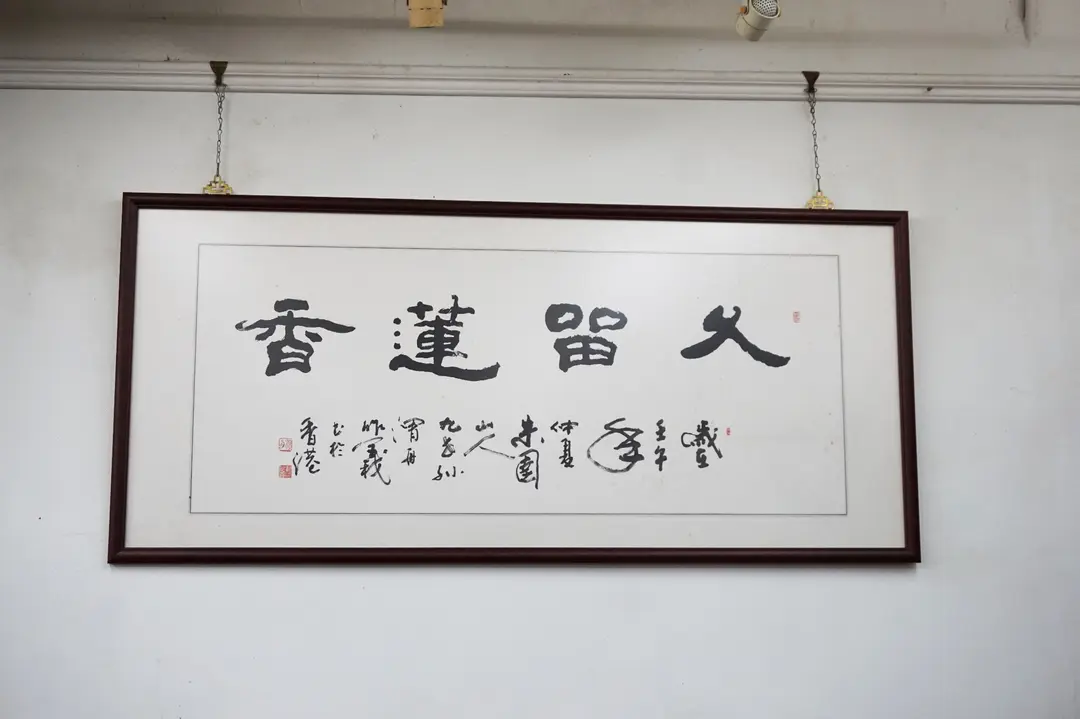 久留蓮香
歲在
壬午
年
仲夏
朱圉
山人
渭舟
書於
香港